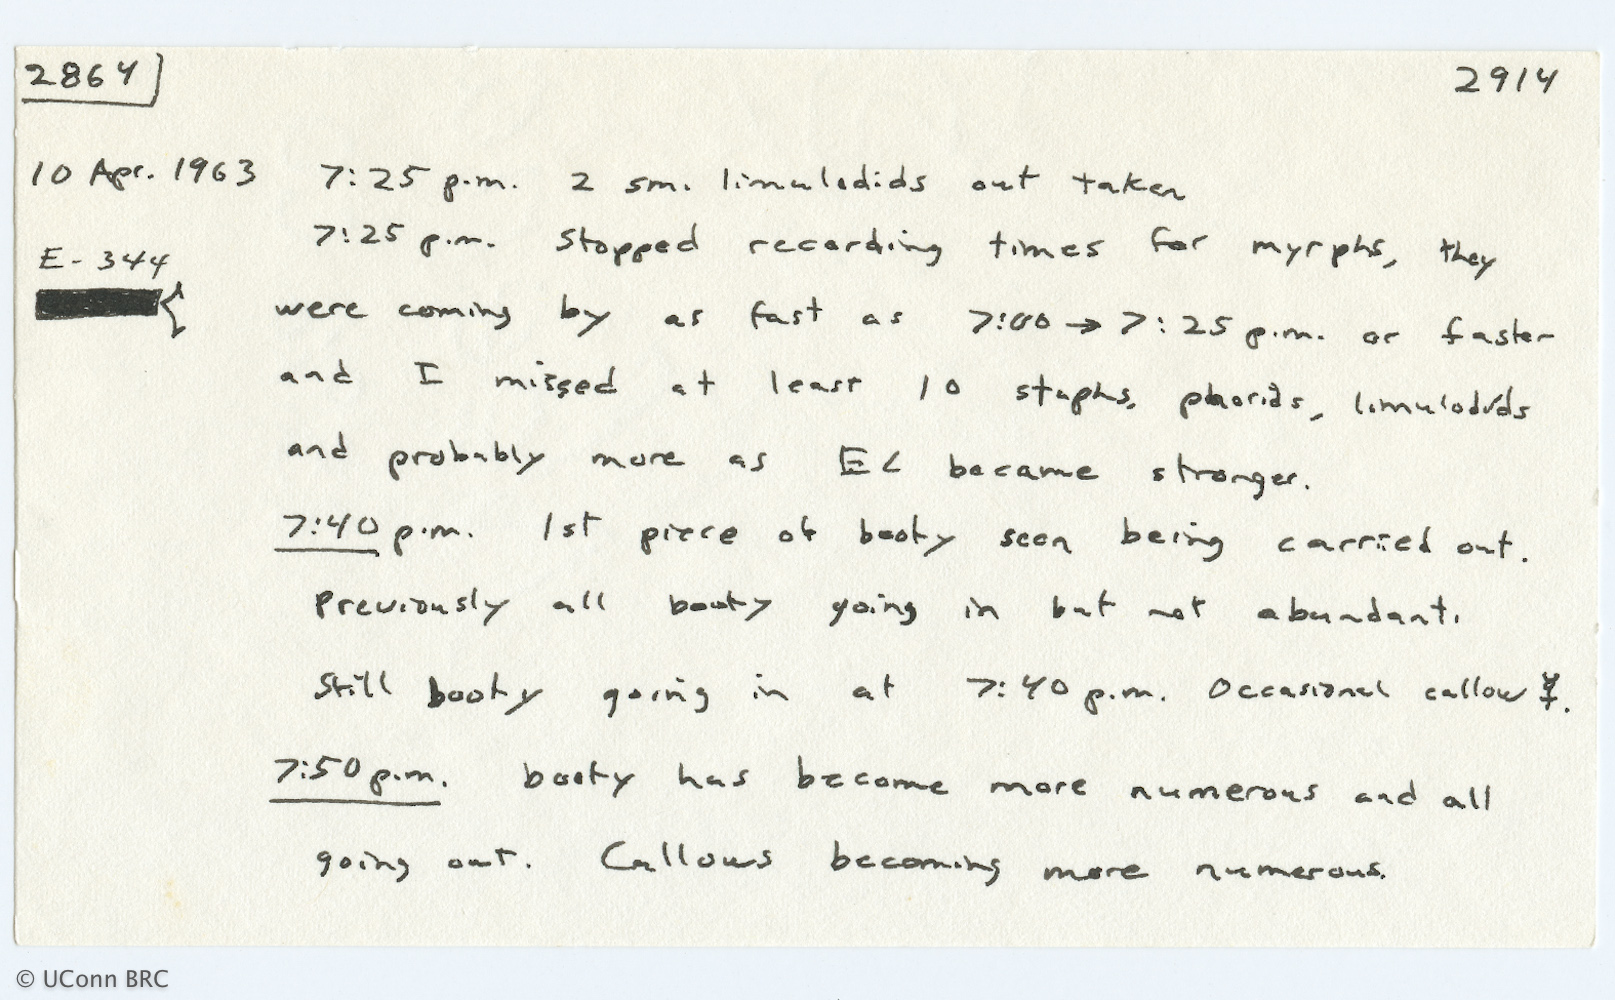 2864
2914
10 Apr. 1963 7:25 p.m. 2 sm. limulodids out taken
7:25 p.m. Stopped recording times for myrphs, they
E-344
were coming by as fast as 7:00 → 7:25 p.m. or faster
and I missed at least 10 staphs, phorids, limulodids
and probably more as EC became stronger.
7:40 p.m. 1st piece of booty seen being carried out.
Previously all booty going in but not abundant.
Still booty going in at 7:40 p.m. Occasional callow ☿.
7:50 p.m. booty has become more numerous and all
going out. Callows becoming more numerous.
© UConn BRC